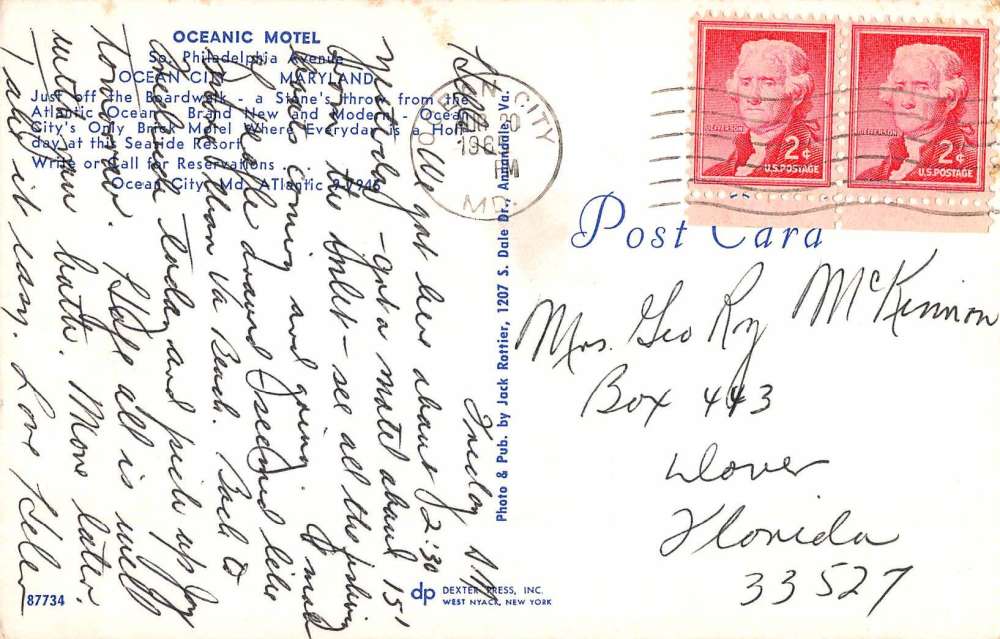 OCEANIC MOTEL
So. Philadelphia Avenue
OCEAN CITY MARYLAND
Just off the Boardwalk - a Stone's throw from the
Atlantic Ocean. Brand New and Modern. Ocean
City's Only Brick Motel Where Everyday is a Holi-
day at this Seaside Resort.
Write or Call for Reservations
Ocean City, Md. ATlantic 9-7946
Friday
We got here about 2:30
yesterday - got a motel about 15'
from the Inlet - see all the fishing
boats coming and going.
drove around I seemed like
than Va Beach. Back to
today and pick up Joy
tomorrow. Hope all is well
with you both. More later.
Take it easy. Love Helen
87734
Photo & Pub. by Jack Rottier, 1207 S. Dale Dr., Annandale, Va.
dp DEXTER PRESS, INC.
WEST NYACK, NEW YORK
CITY
MD.
JEFFERSON
2¢
U.S. POSTAGE
JEFFERSON
2¢
U.S. POSTAGE
Post Card
Mrs. Geo Roy McKinnon
Box 443
Dover
Florida
33527